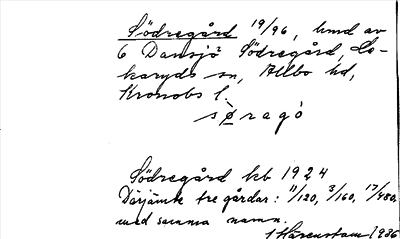 Södregård 19/96, hmd av
6 Dansjö Södregård, Sla-
karyds sn, Allbo hd,
Kronobs l.
sø̀ragó
Södregård kb 1924
Därjämte tre gårdar: 11/120, 3/160, 17/480,
med samma namn.
1936